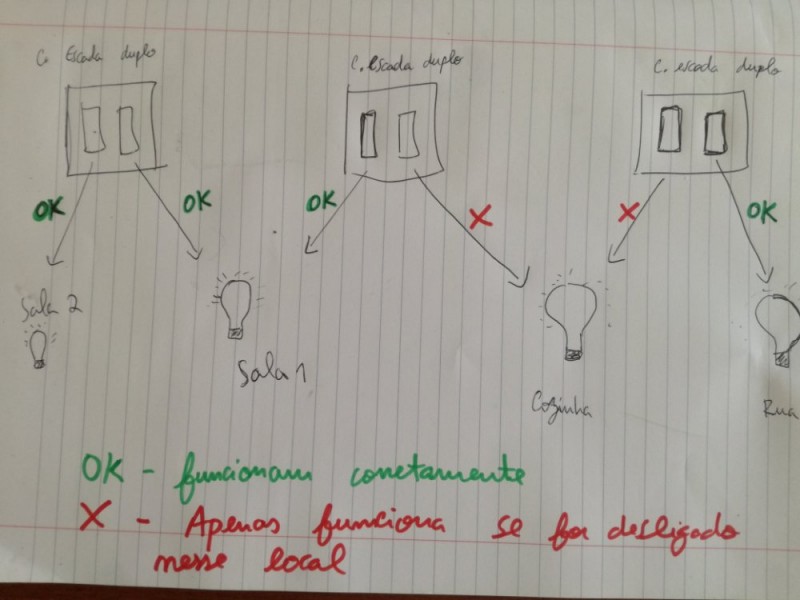 C. Escada duplo
C. escada duplo
C. escada duplo
OK
OK
OK
X
X
OK
Sala 2
Sala 1
Cozinha
Rua
OK - funcionam corretamente
X - Apenas funciona se for desligado
nesse local